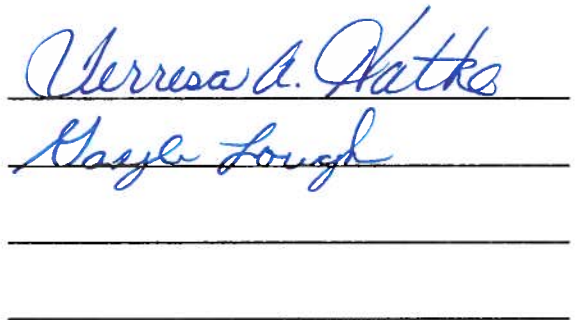 Verresa A. Hathe
Gayle Lough